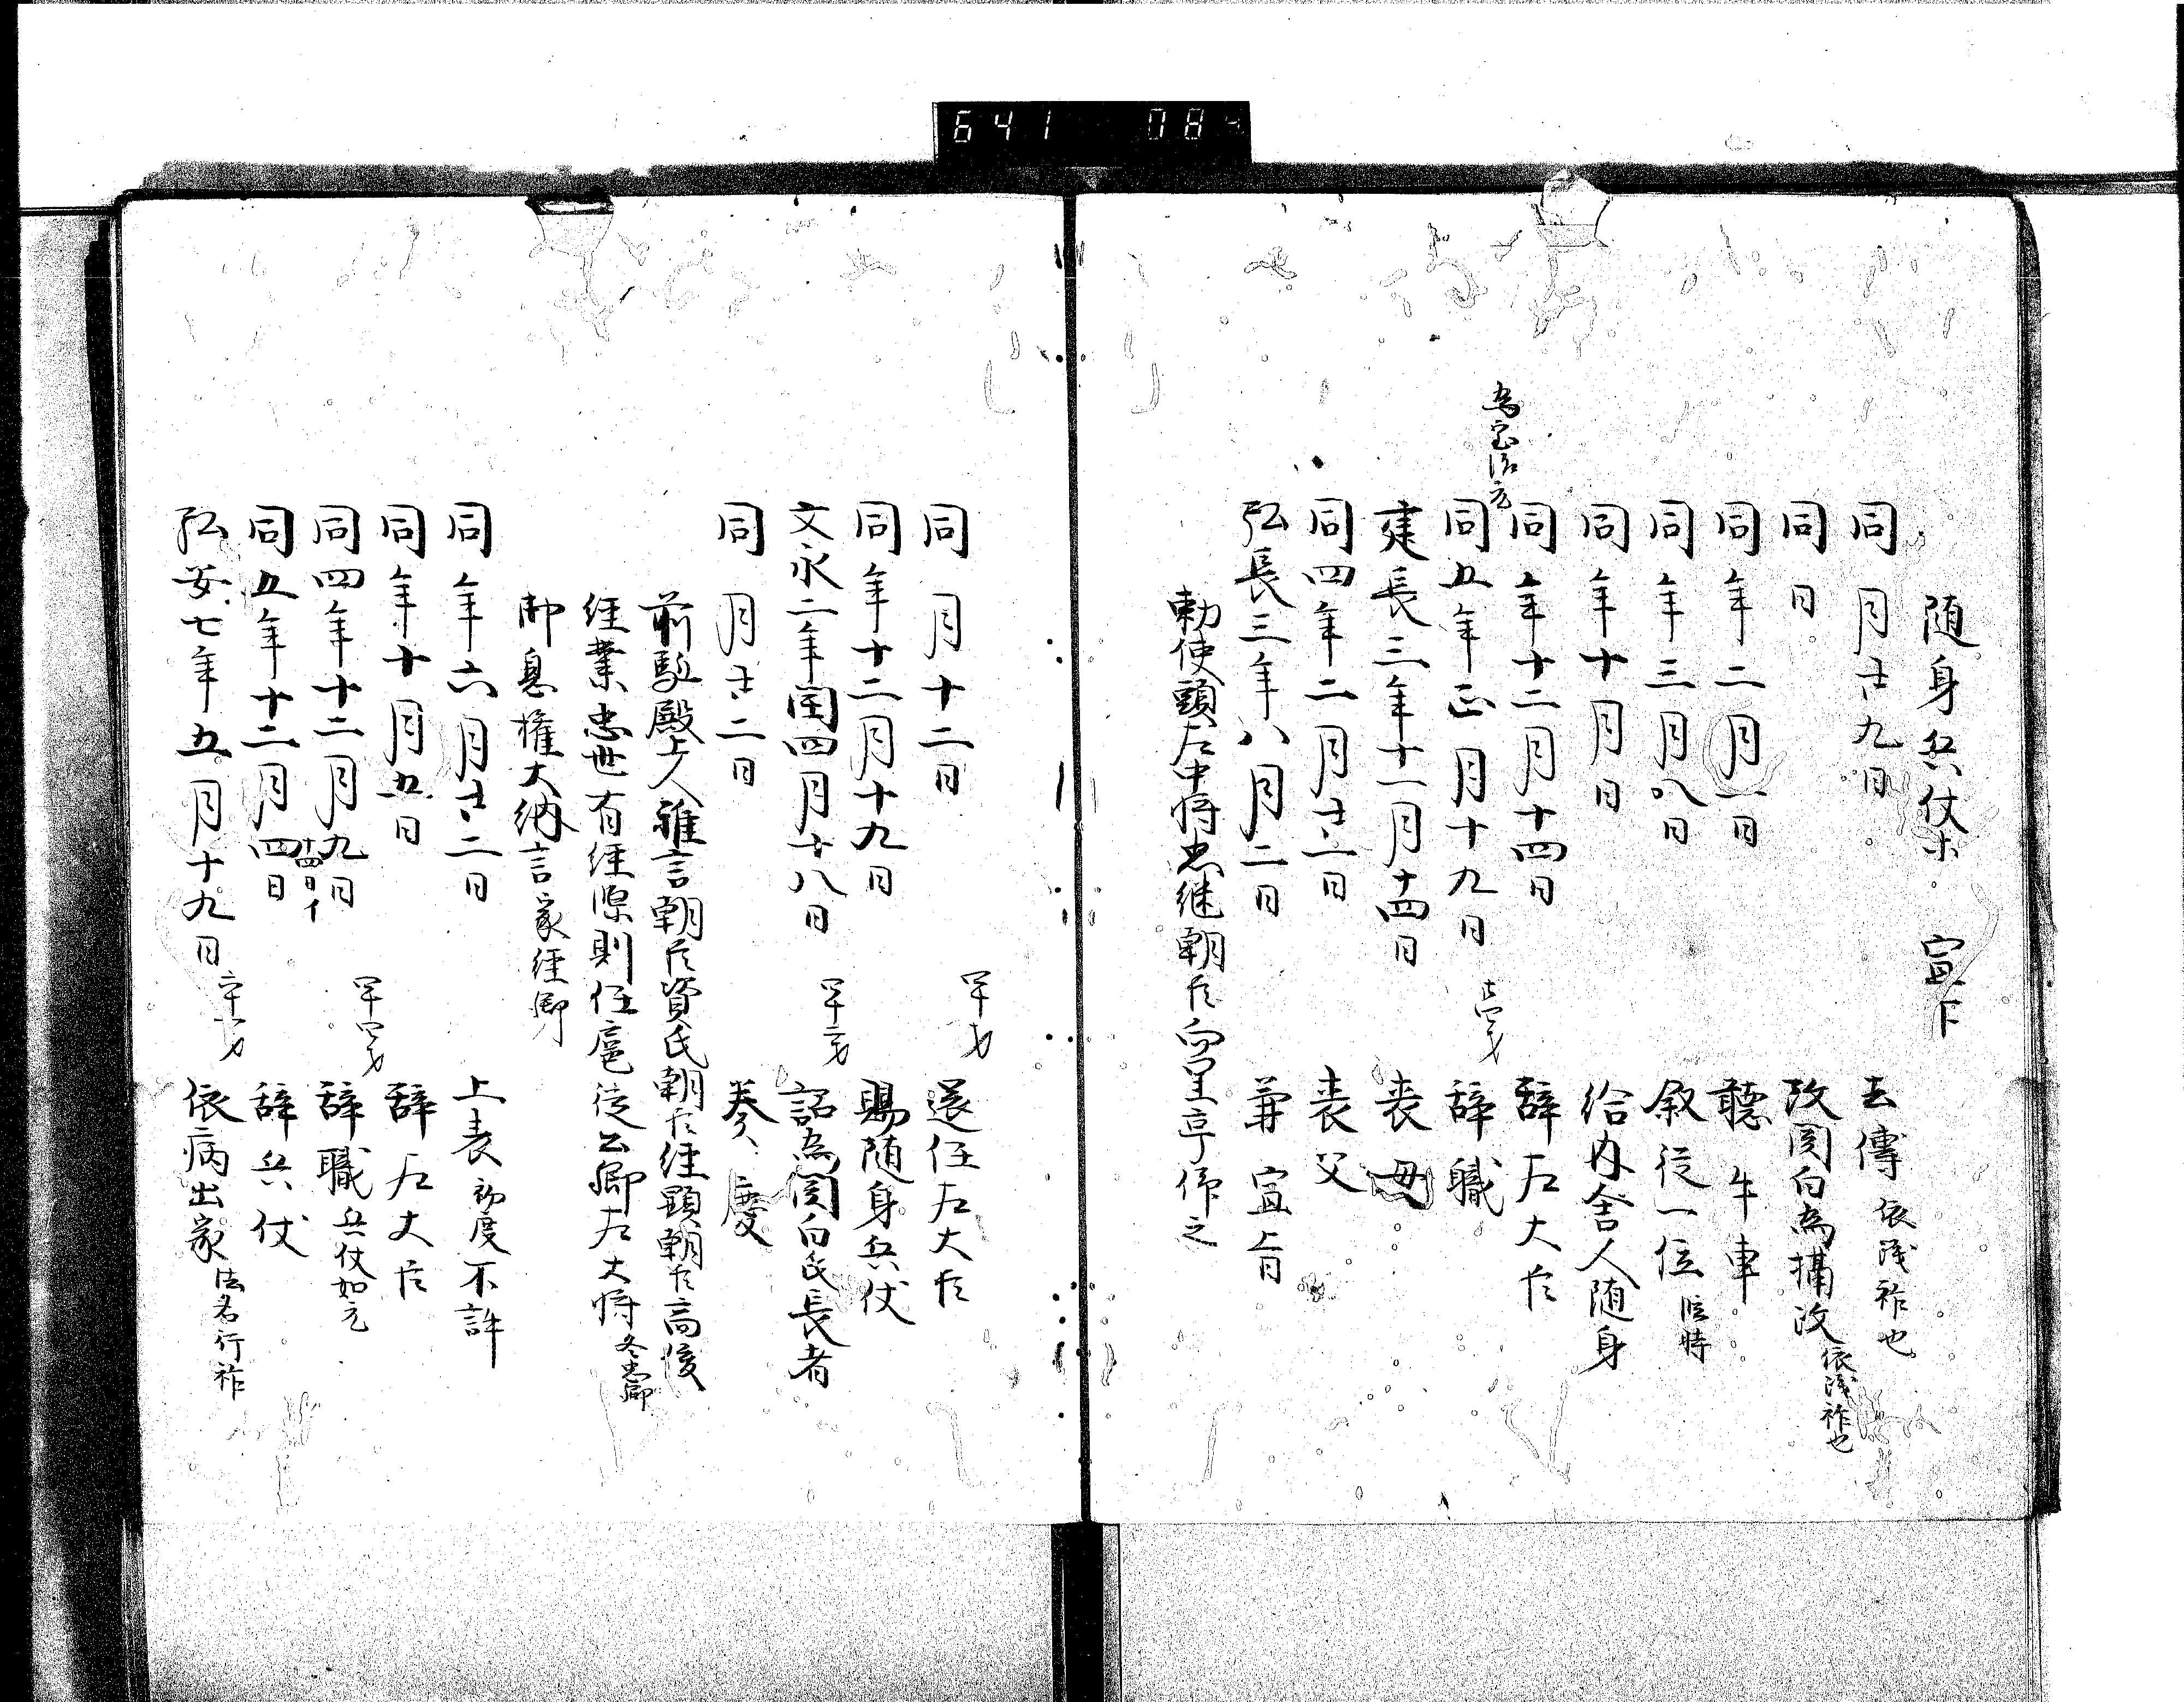 641 08
随身兵仗等 宣下
同 月廿九日 去傅 依践祚也
同 日 改関白為摂政 依践祚也
同 年二月一日 聴牛車
同 年三月八日 叙従一位 臨時
同 年十月日 給内舎人随身
同 年十二月十四日 辞左大臣
為宝治元
同五年正月十九日 廿四才 辞職
建長三年十一月十四日 喪母
同四年二月廿一日 喪父
弘長三年八月二日 兼宣旨
勅使頭左中将忠継朝臣向皇亭作之
同 月十二日 卌才 還任左大臣
同 年十二月十九日 賜随身兵仗
文永二年閏四月十八日 卌二才 詔為関白氏長者
同 月廿二日 奏慶
前駈殿上人雅言朝臣資氏朝臣経顕朝臣高俊
経業忠世有経際則任扈従公卿左大将 冬忠卿
御息権大納言家経卿
同 年六月廿二日 上表 初度不許
同 年十月五日 辞左大臣
同四年十二月九日 十四日イ 卌四才 辞職 兵仗如元
同五年十二月四日 辞兵仗
弘安七年五月十九日 六十一才 依病出家 法名行祚